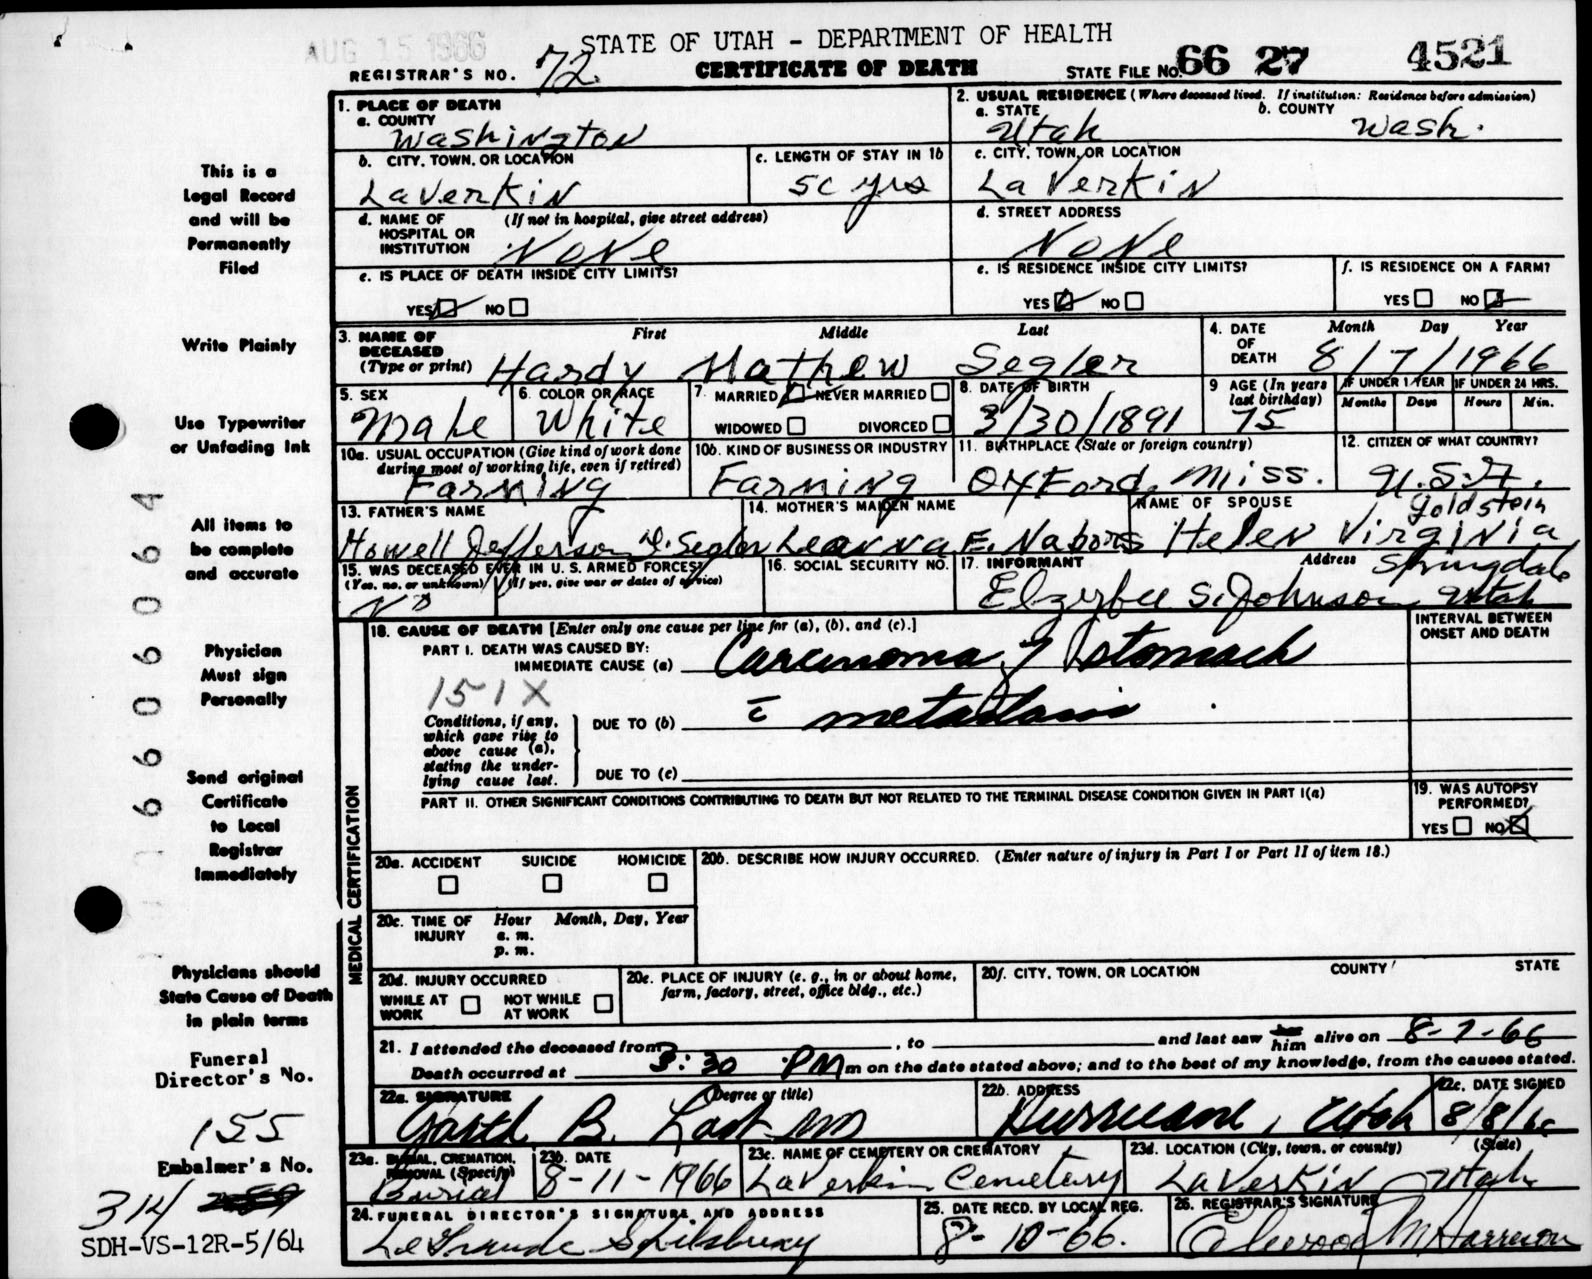 AUG 15 1966
STATE OF UTAH - DEPARTMENT OF HEALTH
REGISTRAR'S NO. 72
CERTIFICATE OF DEATH
STATE FILE NO. 66 27 4521
This is a
Legal Record
and will be
Permanently
Filed
Write Plainly
Use Typewriter
or Unfading Ink
All items to
be complete
and accurate
Physician
Must sign
Personally
Send original
Certificate
to Local
Registrar
Immediately
Physicians should
State Cause of Death
in plain terms
Funeral
Director's No.
155
Embalmer's No.
314
SDH-VS-12R-5/64
1. PLACE OF DEATH
a. COUNTY
Washington
2. USUAL RESIDENCE (Where deceased lived. If institution: Residence before admission)
a. STATE b. COUNTY
Utah Wash.
b. CITY, TOWN, OR LOCATION
LaVerkin
c. LENGTH OF STAY IN 1b
50 yrs
c. CITY, TOWN, OR LOCATION
LaVerkin
d. NAME OF HOSPITAL OR INSTITUTION (If not in hospital, give street address)
None
d. STREET ADDRESS
None
e. IS PLACE OF DEATH INSIDE CITY LIMITS?
YES NO
e. IS RESIDENCE INSIDE CITY LIMITS?
YES NO
f. IS RESIDENCE ON A FARM?
YES NO
3. NAME OF DECEASED (Type or print) First Middle Last
Hardy Mathew Segler
4. DATE OF DEATH Month Day Year
8/7/1966
5. SEX
Male
6. COLOR OR RACE
White
7. MARRIED NEVER MARRIED
WIDOWED DIVORCED
8. DATE OF BIRTH
3/30/1891
9 AGE (In years last birthday)
75
IF UNDER 1 YEAR IF UNDER 24 HRS.
Months Days Hours Min.
10a. USUAL OCCUPATION (Give kind of work done during most of working life, even if retired)
Farming
10b. KIND OF BUSINESS OR INDUSTRY
Farming
11. BIRTHPLACE (State or foreign country)
Oxford, Miss.
12. CITIZEN OF WHAT COUNTRY?
U.S.A.
13. FATHER'S NAME
Howell Jefferson D. Segler
14. MOTHER'S MAIDEN NAME
Leanna E. Nabors
NAME OF SPOUSE
Helen Virginia Goldstein
15. WAS DECEASED EVER IN U.S. ARMED FORCES?
(Yes, no, or unknown) (If yes, give war or dates of service)
No
16. SOCIAL SECURITY NO.
17. INFORMANT Address
S. Johnson Springdale Utah
18. CAUSE OF DEATH [Enter only one cause per line for (a), (b), and (c).]
INTERVAL BETWEEN ONSET AND DEATH
PART I. DEATH WAS CAUSED BY:
IMMEDIATE CAUSE (a) Carcinoma of stomach
151X
Conditions, if any, which gave rise to above cause (a), stating the underlying cause last.
DUE TO (b) c̄ metastasis
DUE TO (c)
PART II. OTHER SIGNIFICANT CONDITIONS CONTRIBUTING TO DEATH BUT NOT RELATED TO THE TERMINAL DISEASE CONDITION GIVEN IN PART I(a)
19. WAS AUTOPSY PERFORMED?
YES NO
MEDICAL CERTIFICATION
20a. ACCIDENT SUICIDE HOMICIDE
20b. DESCRIBE HOW INJURY OCCURRED. (Enter nature of injury in Part I or Part II of item 18.)
20c. TIME OF INJURY Hour Month, Day, Year
a. m.
p. m.
20d. INJURY OCCURRED
WHILE AT WORK NOT WHILE AT WORK
20e. PLACE OF INJURY (e. g., in or about home, farm, factory, street, office bldg., etc.)
20f. CITY, TOWN, OR LOCATION COUNTY STATE
21. I attended the deceased from , to and last saw her him alive on 8-7-66
Death occurred at 3:30 PM m on the date stated above; and to the best of my knowledge, from the causes stated.
22a. SIGNATURE (Degree or title)
Garth B. Last MD
22b. ADDRESS
Hurricane, Utah
22c. DATE SIGNED
8/8/66
23a. BURIAL, CREMATION, REMOVAL (Specify)
Burial
23b. DATE
8-11-1966
23c. NAME OF CEMETERY OR CREMATORY
LaVerkin Cemetery
23d. LOCATION (City, town, or county) (State)
LaVerkin Utah
24. FUNERAL DIRECTOR'S SIGNATURE AND ADDRESS
LeGrande Spilsbury
25. DATE RECD. BY LOCAL REG.
8-10-66.
26. REGISTRAR'S SIGNATURE
Elwood M Harrison